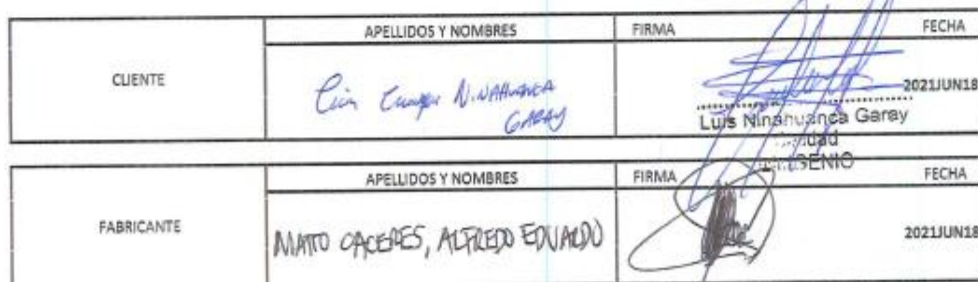 APELLIDOS Y NOMBRES FIRMA FECHA
CLIENTE
NINAHUANCA
GARAY
2021JUN18
Luis Ninahuanca Garay
APELLIDOS Y NOMBRES FIRMA FECHA
FABRICANTE
MATTO CACERES, ALFREDO EDUARDO
2021JUN18